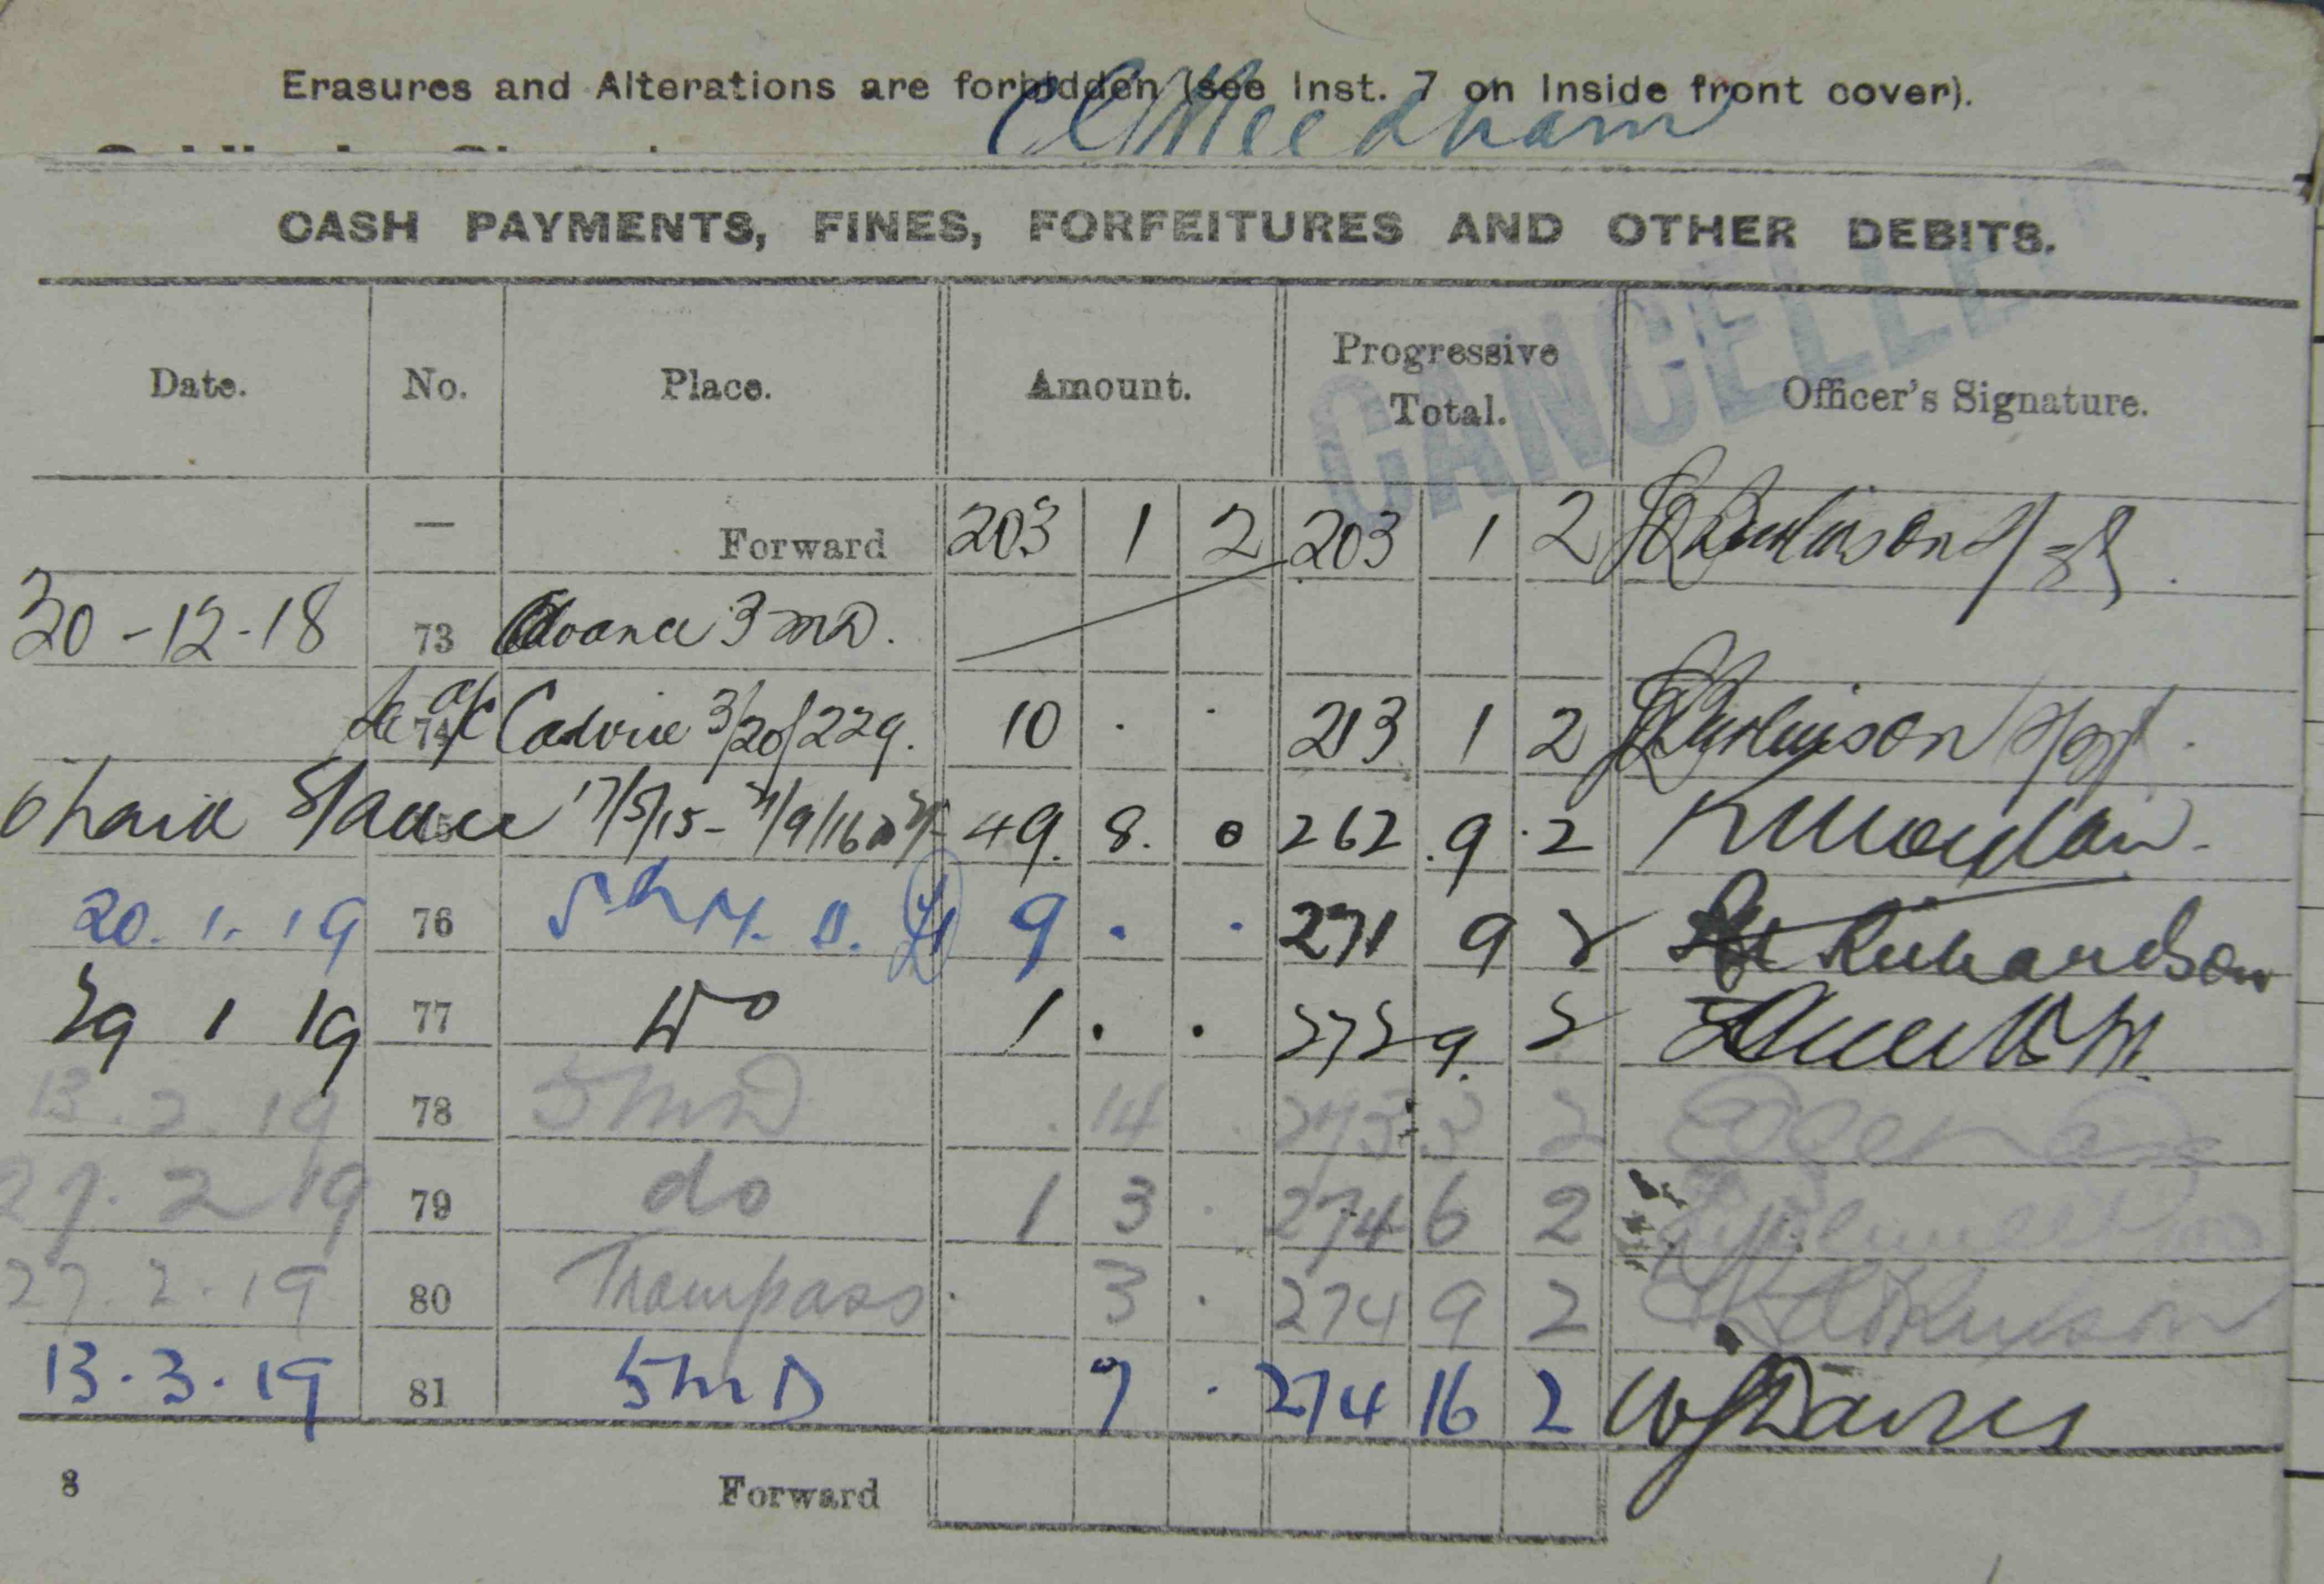 Erasures and Alterations are forbidden (see Inst. 7 on inside front cover).
Needham
CASH PAYMENTS, FINES, FORFEITURES AND OTHER DEBITS.
CANCELLED
Date. No. Place. Amount. Progressive Total. Officer's Signature.
— Forward 203 1 2 203 1 2
30-12-18 73 Advance 3 MD.
74 Cadvice 3/20/229. 10 . . 213 1 2
17/5/15- 49. 8. 0 262. 9. 2
20. 1. 19 76 9 . . 271 9 2 Richardson
29 1 19 77 Do 1 . . 272 9. 2
13. 2. 19 78 5 MD . 14 . 273 3 2
27. 2 19 79 do 1 3 . 274 6 2
27. 2. 19 80 Trampass . 3 . 274 9 2
13. 3. 19 81 5 M D 7 . 274 16 2 W J Davies
8 Forward